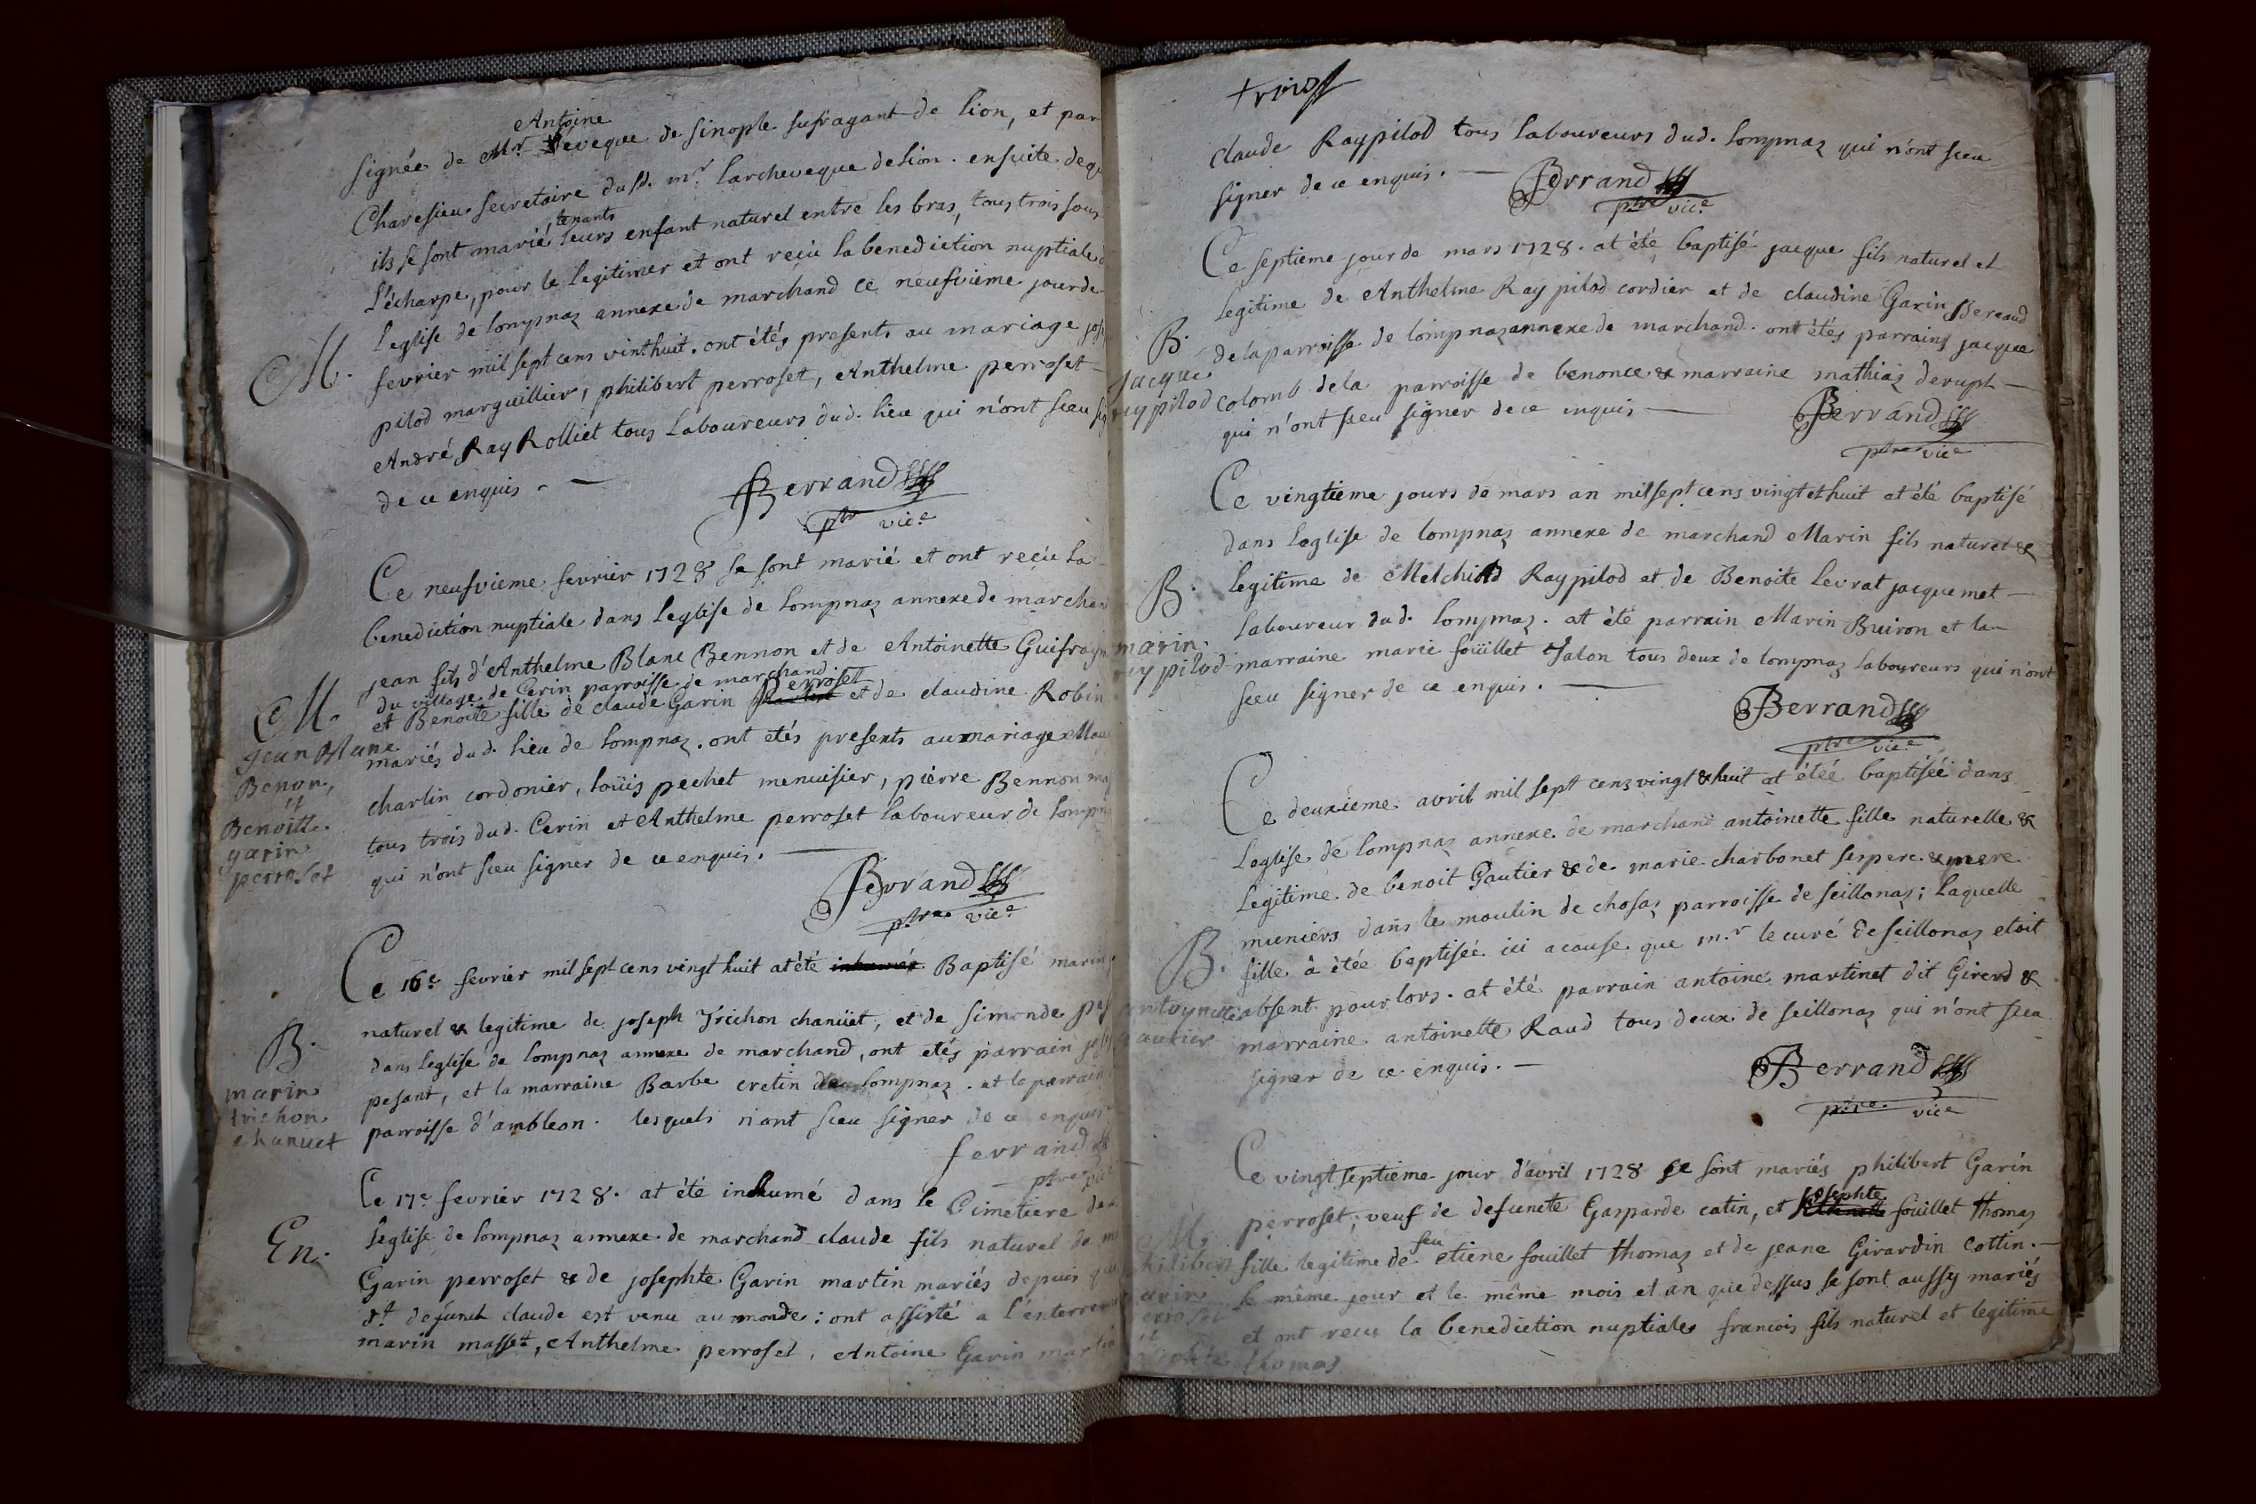 Antoine
signée de Mr. Eveque de sinople sufragant de lion, et par
Charesieu secretaire dusd. mr. larcheveque de lion. ensuite dequ
tenants
ils se sont marié leurs enfant naturel entre les bras, tous trois sous
l'écharpe, pour le legitimer et ont reçu la benediction nuptiale d
M. l'eglise de lompnaz annexe de marchand ce neufvieme jour de
fevrier mil sept cens vinthuit. ont étés presents au mariage jos
pilod marguillier, philibert perroset, Anthelme perroset
André Ray Rolliet tous laboureurs dud. lieu qui n'ont sceu sig
de ce enquis.
Ferrand
ptre vic.e
Ce neufvieme fevrier 1728 se sont marié et ont reçu la
benediction nuptiale dans l'eglise de lompnaz annexe de marchan
jean fils d'Anthelme Blanc Bennon et de Antoinette Guifray
du village de Cerin parroisse de marchand
perroset
M. et Benoite fille de claude Garin et de claudine Robin
jean Blanc
Benon,
et
Benoitte
garin
perroset
mariés dud. lieu de lompnaz. ont etés presents au mariage Mau
charlin cordonier, louis pechet menuisier, pierre Bennon
tous trois dud. Cerin et Anthelme perroset laboureur de lompn
qui n'ont sceu signer de ce enquis.
Ferrand
ptre vic.e
Ce 16e. fevrier mil sept cens vingt huit at été inhumée Baptisé marin
B.
marin
trichon
chanuet
naturel & legitime de joseph Trichon chanüet, et de simonde pes
dans l'eglise de lompnaz annexe de marchand, ont etés parrain jos
pesant, et la marraine Barbe cretin de lompnaz. et le parrain
parroisse d'ambleon. lesquels n'ont sceu signer de ce enquis
ferrand
ptre vic
En.
Ce 17e. fevrier 1728. at été inhumé dans le Cimetiere de
l'eglise de lompnaz annexe de marchand claude fils naturel de m
Garin perroset & de josephte Garin martin mariés depuis que
d.t defunct claude est venu au monde: ont assisté a l'enterrem
marin massett, Anthelme perroset, Antoine Garin martin
trois
claude Raypilod tous laboureurs dud. lompnaz qui n'ont sceu
signer de ce enquis.
Ferrand
ptre vic.e
Ce septieme jour de mars 1728. at été baptisé jacque fils naturel et
legitime de Anthelme Ray pilod cordier et de claudine Garin Bereaud
B.
jacque
ray pilod
de la parroisse de lompnaz annexe de marchand. ont étés parrains jacque
colomb de la parroisse de benonce & marraine mathiaz deruph
qui n'ont sceu signer de ce enquis
Ferrand
ptre vic.e
Ce vingtieme jours de mars an mil sept cens vingt et huit at été baptisé
dans l'eglise de lompnaz annexe de marchand Marin fils naturel &
B.
marin
ray pilod
legitime de Melchiod Raypilod et de Benoite levrat jacquemet
laboureur dud. lompnaz. at été parrain Marin Buiron et la
marraine marie foüillet Jalon tous deux de lompnaz laboureurs qui n'ont
sceu signer de ce enquis.
Ferrand
ptre vic.e
Ce deuxieme avril mil sept cens vingt & huit at étée baptisée dans
l'eglise de lompnaz annexe de marchand antoinette fille naturelle &
legitime de benoit Gautier & de marie charbonet ses pere & mere
B.
antoynette
gautier
muniers dans le moulin de chosaz parroisse de seillonaz; laquelle
fille à étée baptisée ici a cause que m.r le curé de seillonaz etoit
absent pour lors. at été parrain antoine martinet dit Girerd &
marraine antoinette Raud tous deux de seillonaz qui n'ont sceu
signer de ce enquis.
Ferrand
ptre vic.e
Ce vingt septieme jour d'avril 1728 se sont mariés philibert Garin
josephte
perroset, veuf de defuncte Gasparde catin, et fouillet thomaz
M.
philibert
garin
perroset
et
josephte thomas
feu
fille legitime de etiene fouillet thomaz et de jeane Girardin cottin.
le même jour et le même mois et an que dessus se sont aussy mariés
et ont recu la benediction nuptiales francois fils naturel et legitime